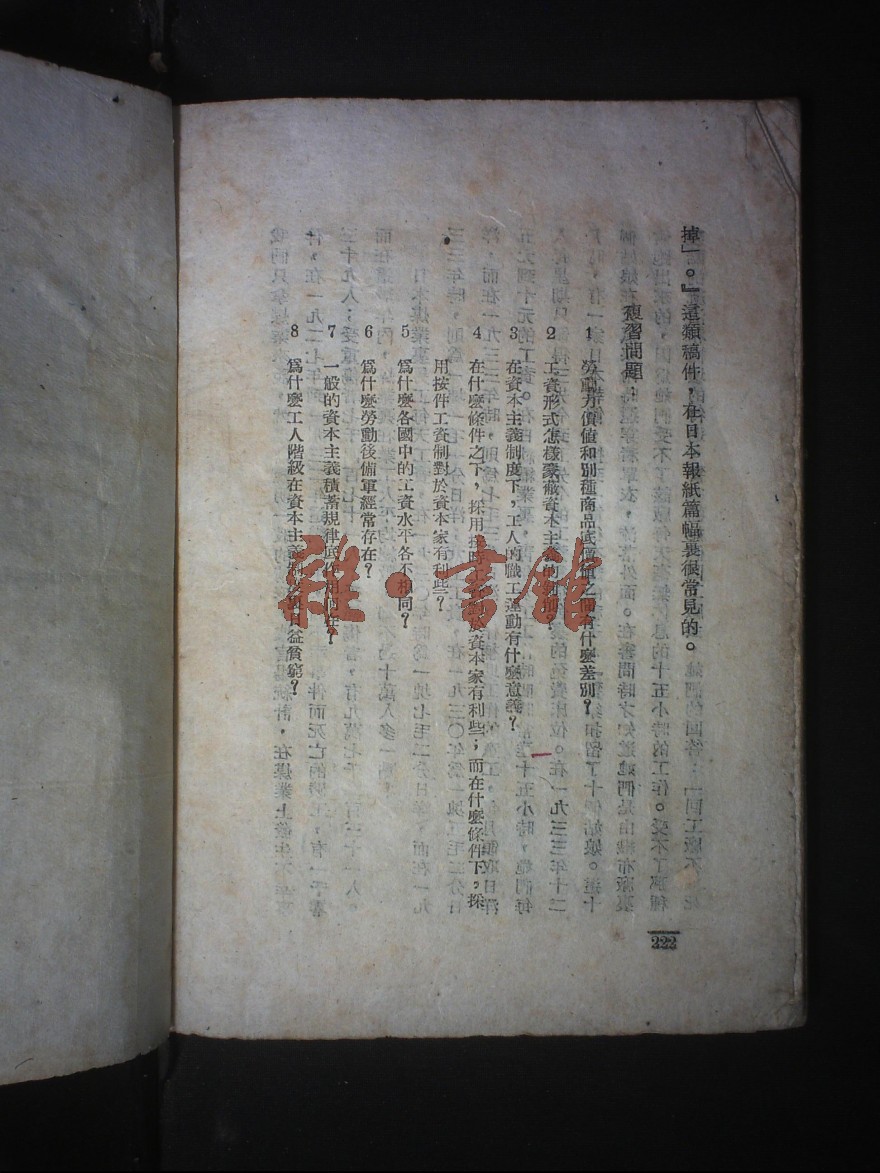 掉』。』這類稿件,在日本報紙篇幅裏很常見的。
複習問題:
1 勞動力價值和別種商品底價值之間有什麼差別?
2 工資形式怎樣蒙蔽資本主義的剝削?
3 在資本主義制度下,工人的職工運動有什麼意義?
4 在什麼條件之下,採用按時工資制對於資本家有利些;而在什麼條件下,採
用按件工資制對於資本家有利些?
5 爲什麼各國中的工資水平各不相同?
6 爲什麼勞動後備軍經常存在?
7 一般的資本主義積蓄規律底作用何在?
8 爲什麼工人階級在資本主義制度下日益貧窮?
222
雜·書館